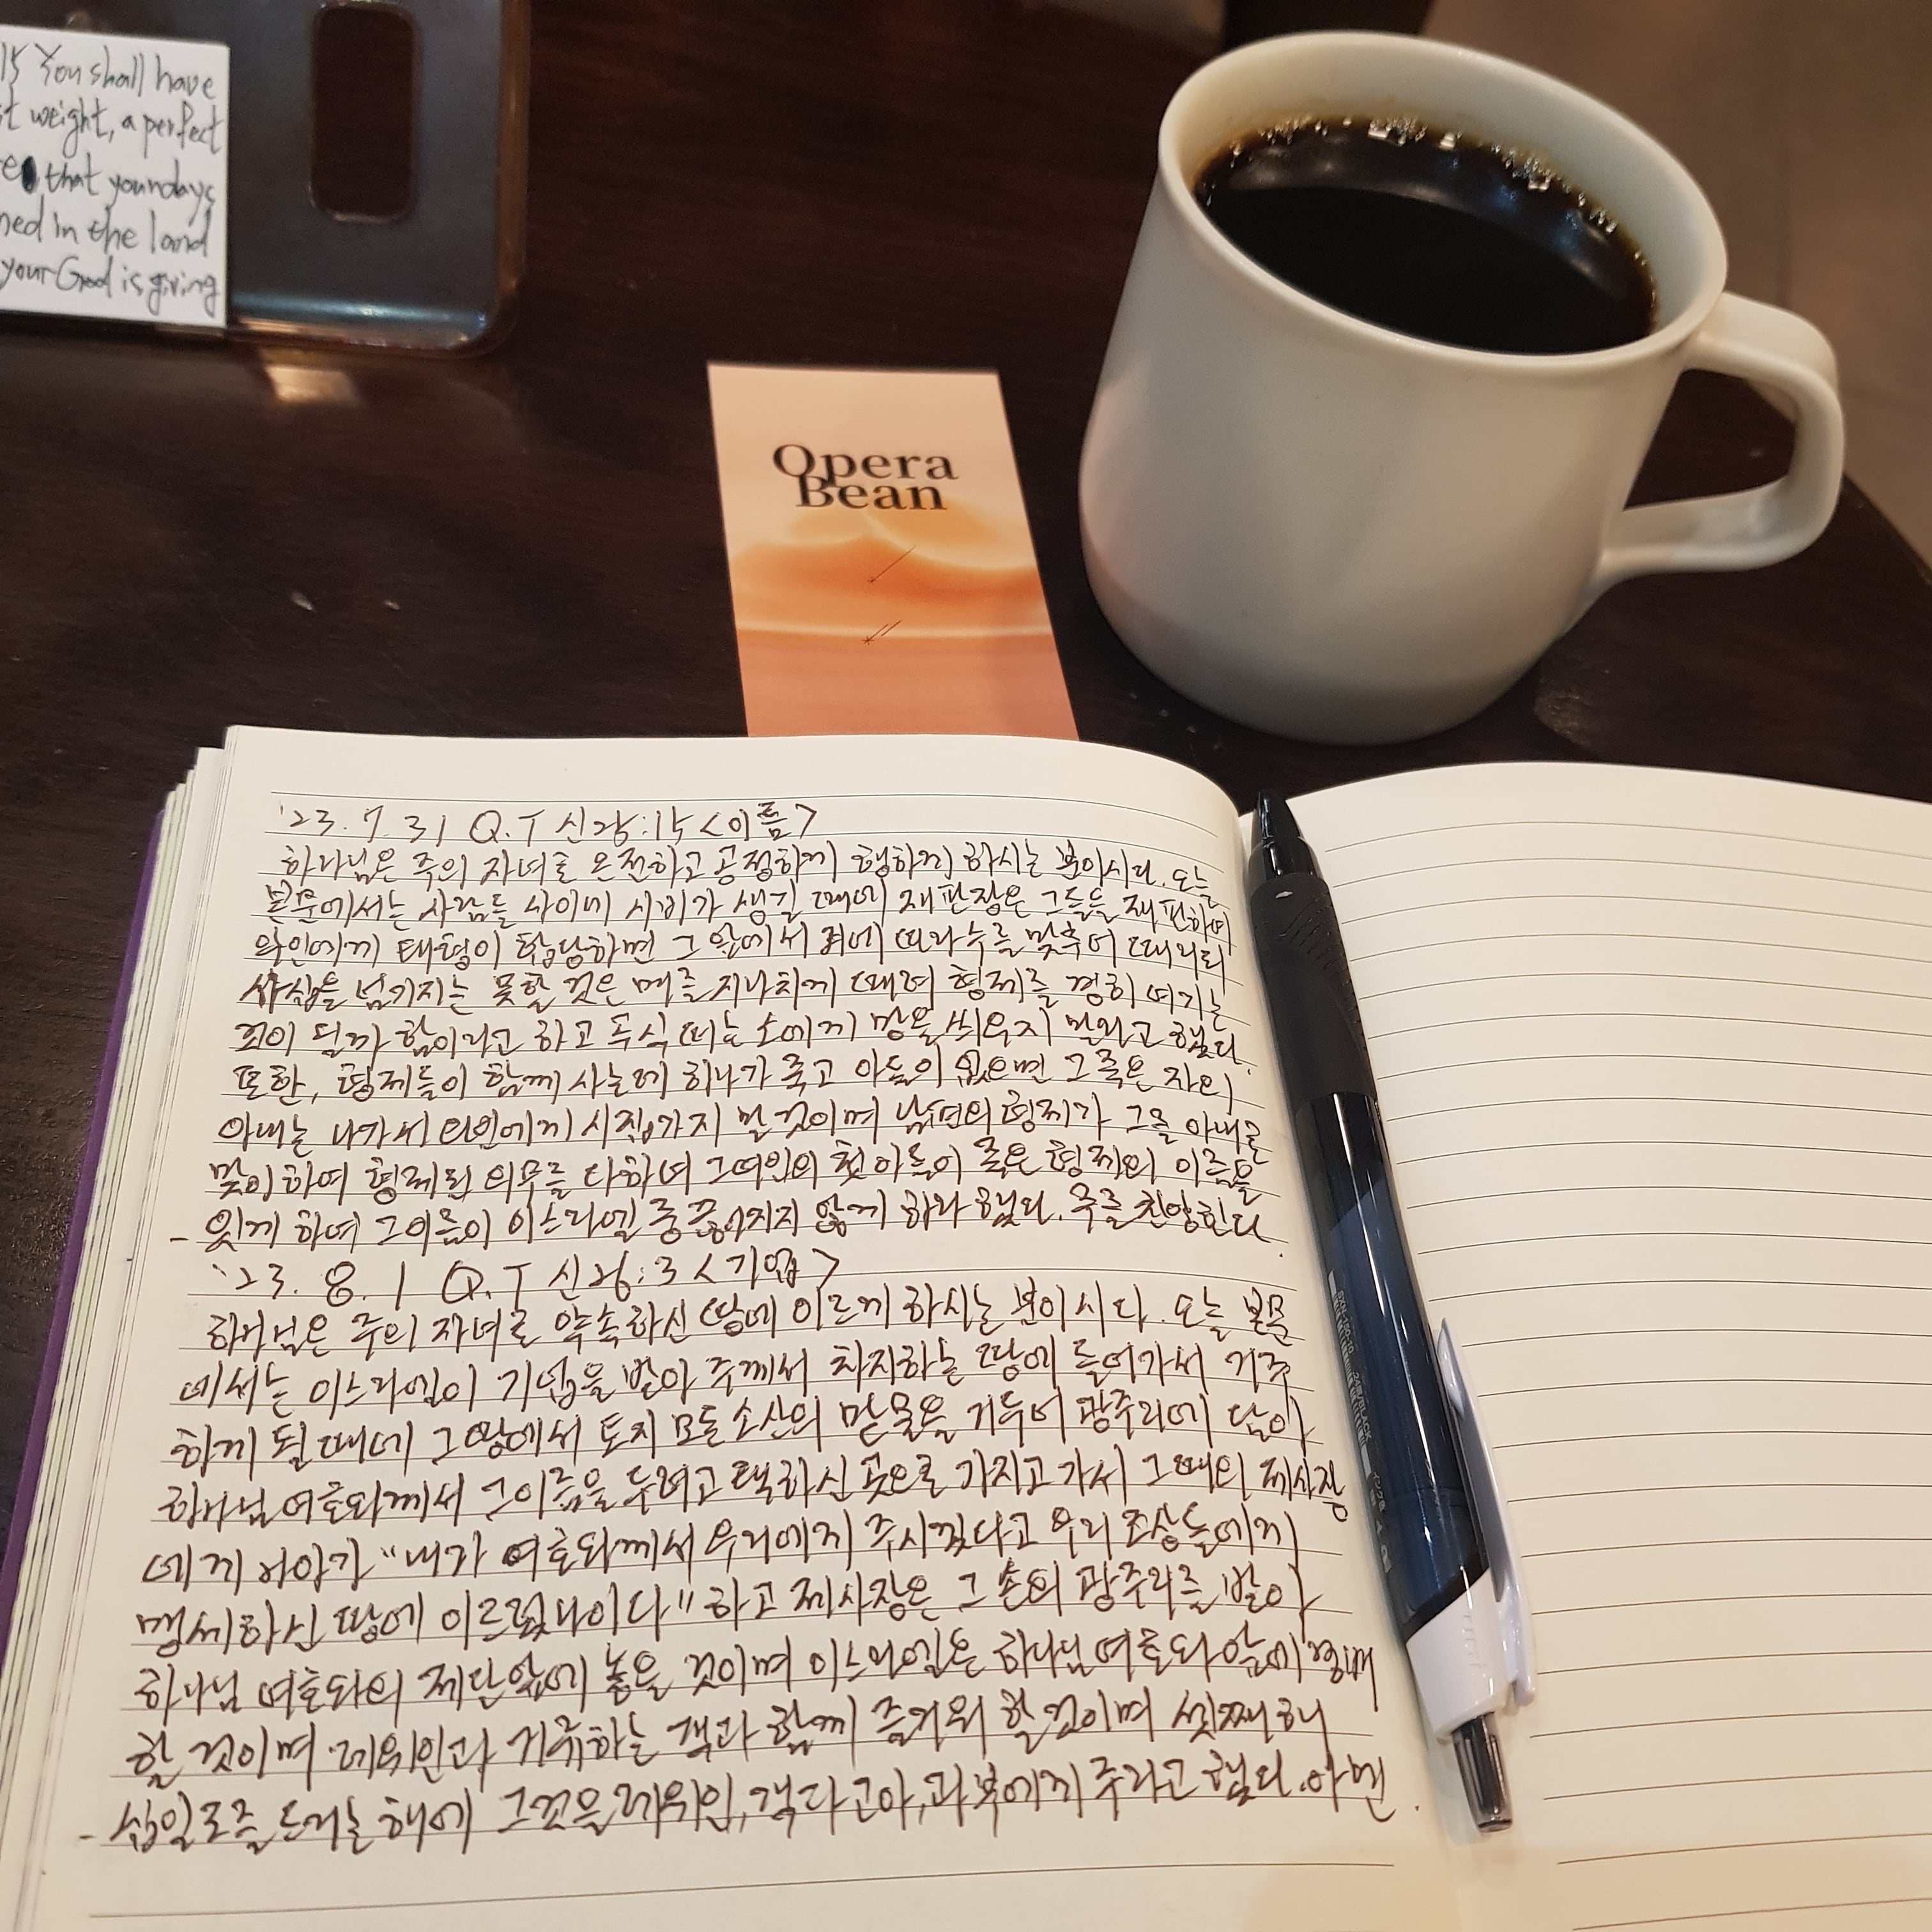 15 You shall have
t weight, a perfect
e, that your days
ned in the land
your God is giving
Opera
Bean
'23. 7. 31 Q.T 신25:15 <이름>
하나님은 주의 자녀로 온전하고 공정하게 행하게 하시는 분이시다. 오늘
본문에서는 사람들 사이에 시비가 생길 때에 재판장은 그들을 재판하여
악인에게 태형이 합당하면 그 앞에서 죄에 따라 수를 맞추어 때리되
사십을 넘기지는 못할 것은 매를 지나치게 때려 형제를 경히 여기는
것이 될까 함이라고 하고 곡식 떠는 소에게 망을 씌우지 말라고 했다.
또한, 형제들이 함께 사는데 하나가 죽고 아들이 없으면 그 죽은 자의
아내는 나가서 타인에게 시집가지 말 것이며 남편의 형제가 그를 아내로
맞이하여 형제된 의무를 다하여 그 여인의 첫 아들이 죽은 형제의 이름을
- 잇게 하여 그 이름이 이스라엘 중 끊어지지 않게 하라 했다. 주를 찬양한다.
'23. 8. 1 Q.T 신26:3 <기업>
하나님은 주의 자녀로 약속하신 땅에 이르게 하시는 분이시다. 오늘 본문
에서는 이스라엘이 기업을 받아 주께서 차지하는 땅에 들어가서 거주
하게 될 때에 그 땅에서 토지 모든 소산의 맏물을 거두어 광주리에 담아
하나님 여호와께서 그 이름을 두려고 택하신 곳으로 가지고 가서 그 때의 제사장
에게 나아가 "내가 여호와께서 우리에게 주시겠다고 우리 조상들에게
맹세하신 땅에 이르렀나이다" 하고 제사장은 그 손의 광주리를 받아
하나님 여호와의 제단 앞에 놓을 것이며 이스라엘은 하나님 여호와 앞에 경배
할 것이며 레위인과 거류하는 객과 함께 즐거워 할 것이며 셋째 해
- 십일조를 드리는 해에 그것을 레위인, 객과 고아, 과부에게 주라고 했다. 아멘.